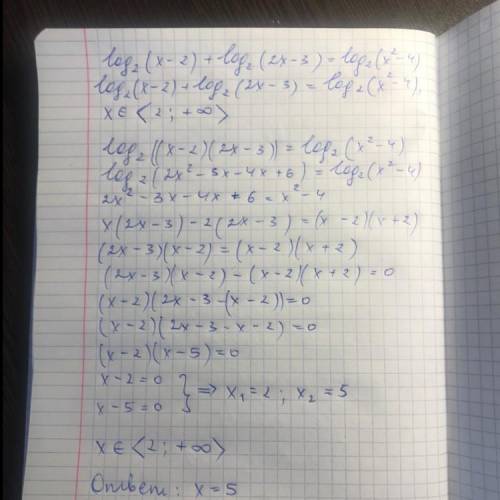 log₂(x-2)+log₂(2x-3)=log₂(x²-4)
log₂(x-2)+log₂(2x-3)=log₂(x²-4)
x∈⟨2;+∞⟩
log₂((x-2)(2x-3))=log₂(x²-4)
log₂(2x²-3x-4x+6)=log₂(x²-4)
2x²-3x-4x+6=x²-4
x(2x-3)-2(2x-3)=(x-2)(x+2)
(2x-3)(x-2)=(x-2)(x+2)
(2x-3)(x-2)-(x-2)(x+2)=0
(x-2)(2x-3-(x-2))=0
(x-2)(2x-3-x-2)=0
(x-2)(x-5)=0
x-2=0
x-5=0 } ⇒ x₁=2; x₂=5
x∈⟨2;+∞⟩
Ответ: x=5